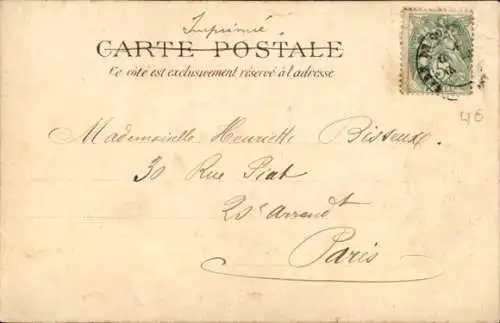 Imprimé
CARTE POSTALE
Ce côté est exclusivement réservé à l'adresse
46
Mademoiselle Henriette Bisseux.
30 Rue Piat
20e Arrondt
Paris